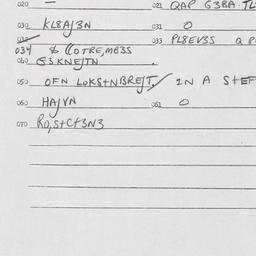 020 — 021 QAP G3BA.TL
030 KL8A/3N 031 O
032 033 PL8EV3S Q P
034 & ((OTRE,MB3S
040 G3KNE/TN
050 OFN LOKS+NBRE/T, IN A STEF
060 HA/VN 061 O
070 RO,S+C+3N3